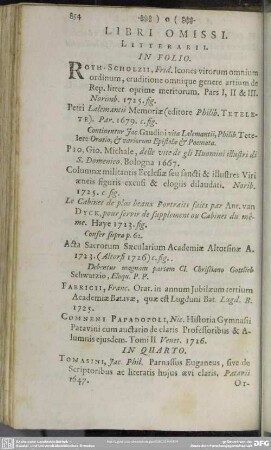 814 ) o (
LIBRI OMISSI.
LITTERARII.
IN FOLIO.
ROTH-SCHOLZII, Frid. Icones virorum omnium
ordinum, eruditione omnique genere artium de
Rep. litter optime meritorum. Pars I, II & III.
Norimb. 1725. fig.
Petri Lalemantii Memoriæ (editore Philib. TETELE-
TE). Par. 1679. c. fig.
Continentur Jac. Gaudini vita Lalemantii, Philib Tete-
lete Oratio, & variorum Epistolæ & Poemata.
PIO, Gio. Michale, delle vite de gli Huomini illustri di
S. Domenico. Bologna 1667.
Columnæ militantis Ecclesiæ seu sancti & illustres Viri
æneis figuris excusi & elogiis dilaudati. Norib.
1725. c. fig.
Le Cabinet de plus beaux Portraits faits par Ant. van
DYCK, pour servir de supplement au Cabinet du mê-
me. Haye 1723. fig.
Confer supra p. 62.
Acta Sacrorum Sæcularium Academiæ Altorfinæ A.
1723. (Altorfi 1726) c. fig.
Debentur magnam partem Cl. Christiano Gottlieb
Schwartzio, Eloqu. P. P.
FABRICII, Franc. Orat. in annum Jubilæum tertium
Academiæ Batavæ, quæ est Lugduni Bat. Lugd. B.
1725.
COMNENI PAPADOPOLI, Nic. Historia Gymnasii
Patavini cum auctario de claris Professoribus & A-
lumnis ejusdem. Tomi II Venet. 1726.
IN QUARTO.
TOMASINI, Jac. Phil. Parnassus Euganeus, sive de
Scriptoribus ac literatis hujus ævi claris. Patavii
1647.
Or-